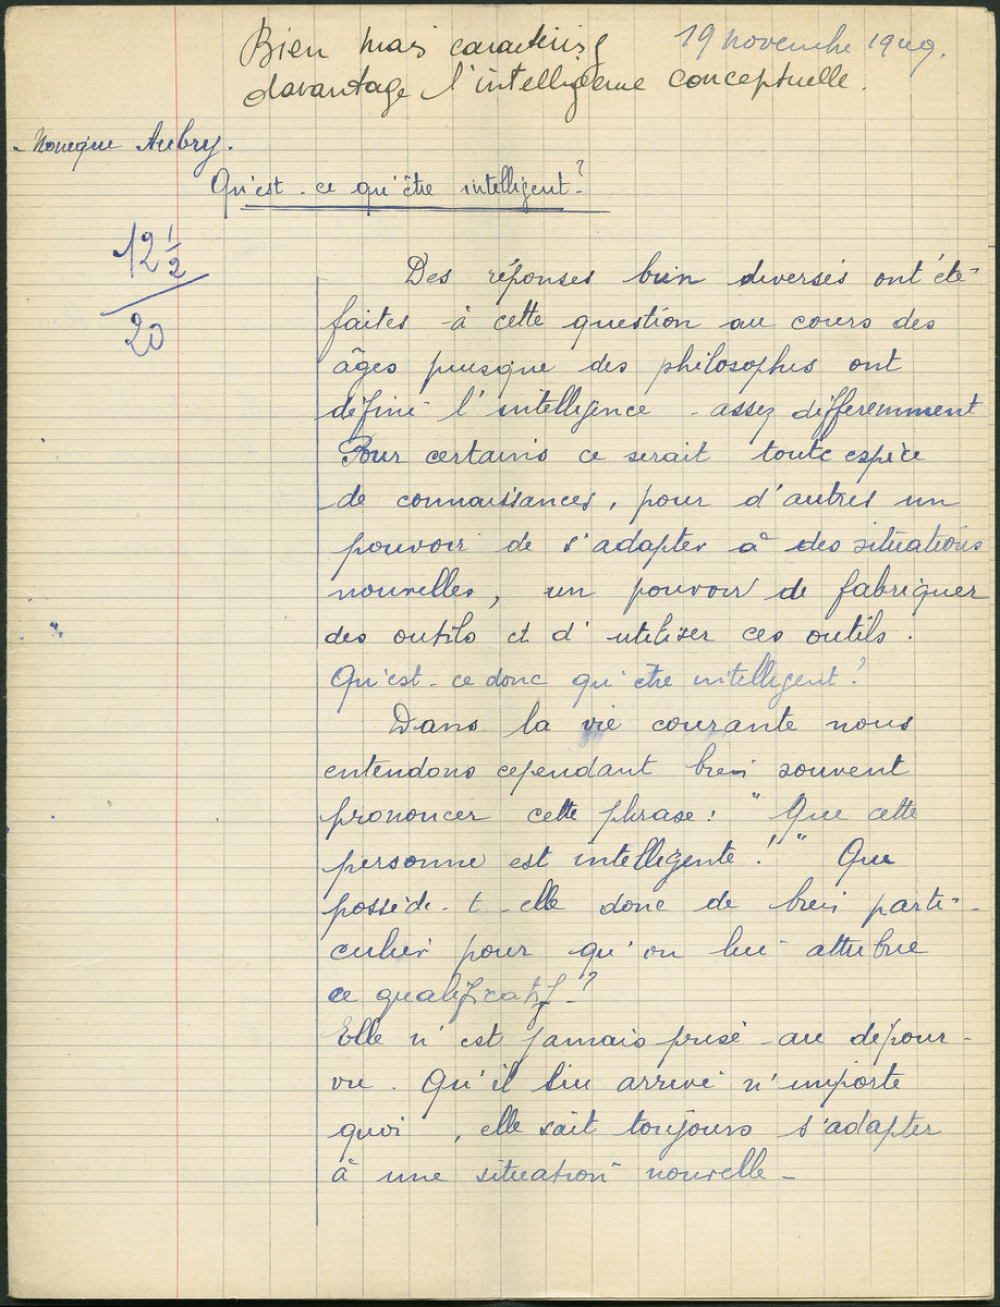 Bien mais caractérise
19 novembre 1949.
davantage l'intelligence conceptuelle.
Monique Aubry.
Qu'est-ce qu'être intelligent?
12 1/2
20
Des réponses bien diverses ont été
faites à cette question au cours des
âges puisque des philosophes ont
défini l'intelligence assez différemment
Pour certains ce serait toute espèce
de connaissances, pour d'autres un
pouvoir de s'adapter à des situations
nouvelles, un pouvoir de fabriquer
des outils et d'utiliser ces outils.
Qu'est-ce donc qu'être intelligent?
Dans la vie courante nous
entendons cependant bien souvent
prononcer cette phrase: "Que cette
personne est intelligente!" Que
possède-t-elle donc de bien parti-
culier pour qu'on lui attribue
ce qualificatif?
Elle n'est jamais prise au dépour-
vu. Qu'il lui arrive n'importe
quoi, elle sait toujours s'adapter
à une situation nouvelle-